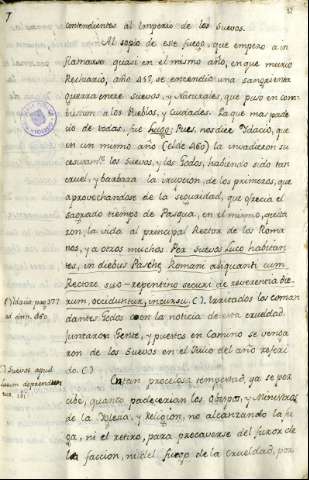 7
contendientes al Imperio de los Suevos.
Al soplo de este fuego, que empezo a in
flamarse quasi en el mismo año, en que murio
Rechiario, año 457, se encendió una sangrienta
guerra entre Suevos, y Naturales, que puso en com
bustion a los Pueblos, y Ciudades. La que mas pade
ció de todas, fue Lugo: Pues nos dice Idacio, que
en un mismo año (el de 460) la invadieron su
cesivam.te los Suevos, y los Godos, habiendo sido tan
cruel, y barbara la irrupcion, de los primeros, que
aprovechandose de la seguridad, que ofrecia el
sagrado tiempo de Pasqua, en el mismo, quita
ron la vida al principal Rector de los Roma
nos, y a otros muchos Per Suevos Luco habitan
tes, in diebus Pasche Romani aliquanti cum
Rectore suo repentino securi de reverentia die
rum, occiduntur, incursu. (·). Irritados los coman
dantes Godos con la noticia de esta crueldad
juntaron Gente, y puertos en camino se venga
ron de los Suevos en el Julio del año referi
do. (·)
Idacio pag. 377
ad ann. 460.
(·) Suevos apud
Lucum deprendun
tur
En tan procelosa tempestad, ya se per
cibe, quanto padecerian los Obispos, y Ministros
de la Iglesia, y Religion, no alcanzando la fu
ga, ni el retiro, para precaverse del furor de
la faccion, ni del fuego de la crueldad, por